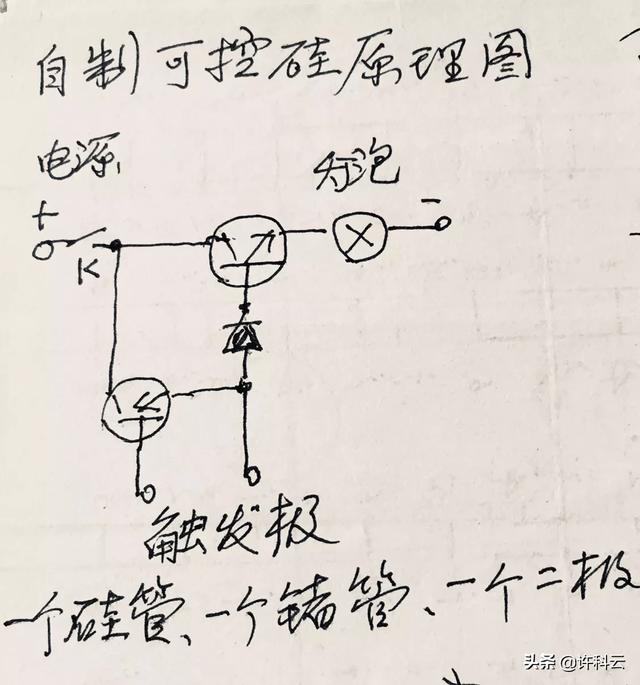 自制可控硅原理图
电源
灯泡
+
-
K
触发极
一个硅管、一个锗管、一个二极
头条 @许科云